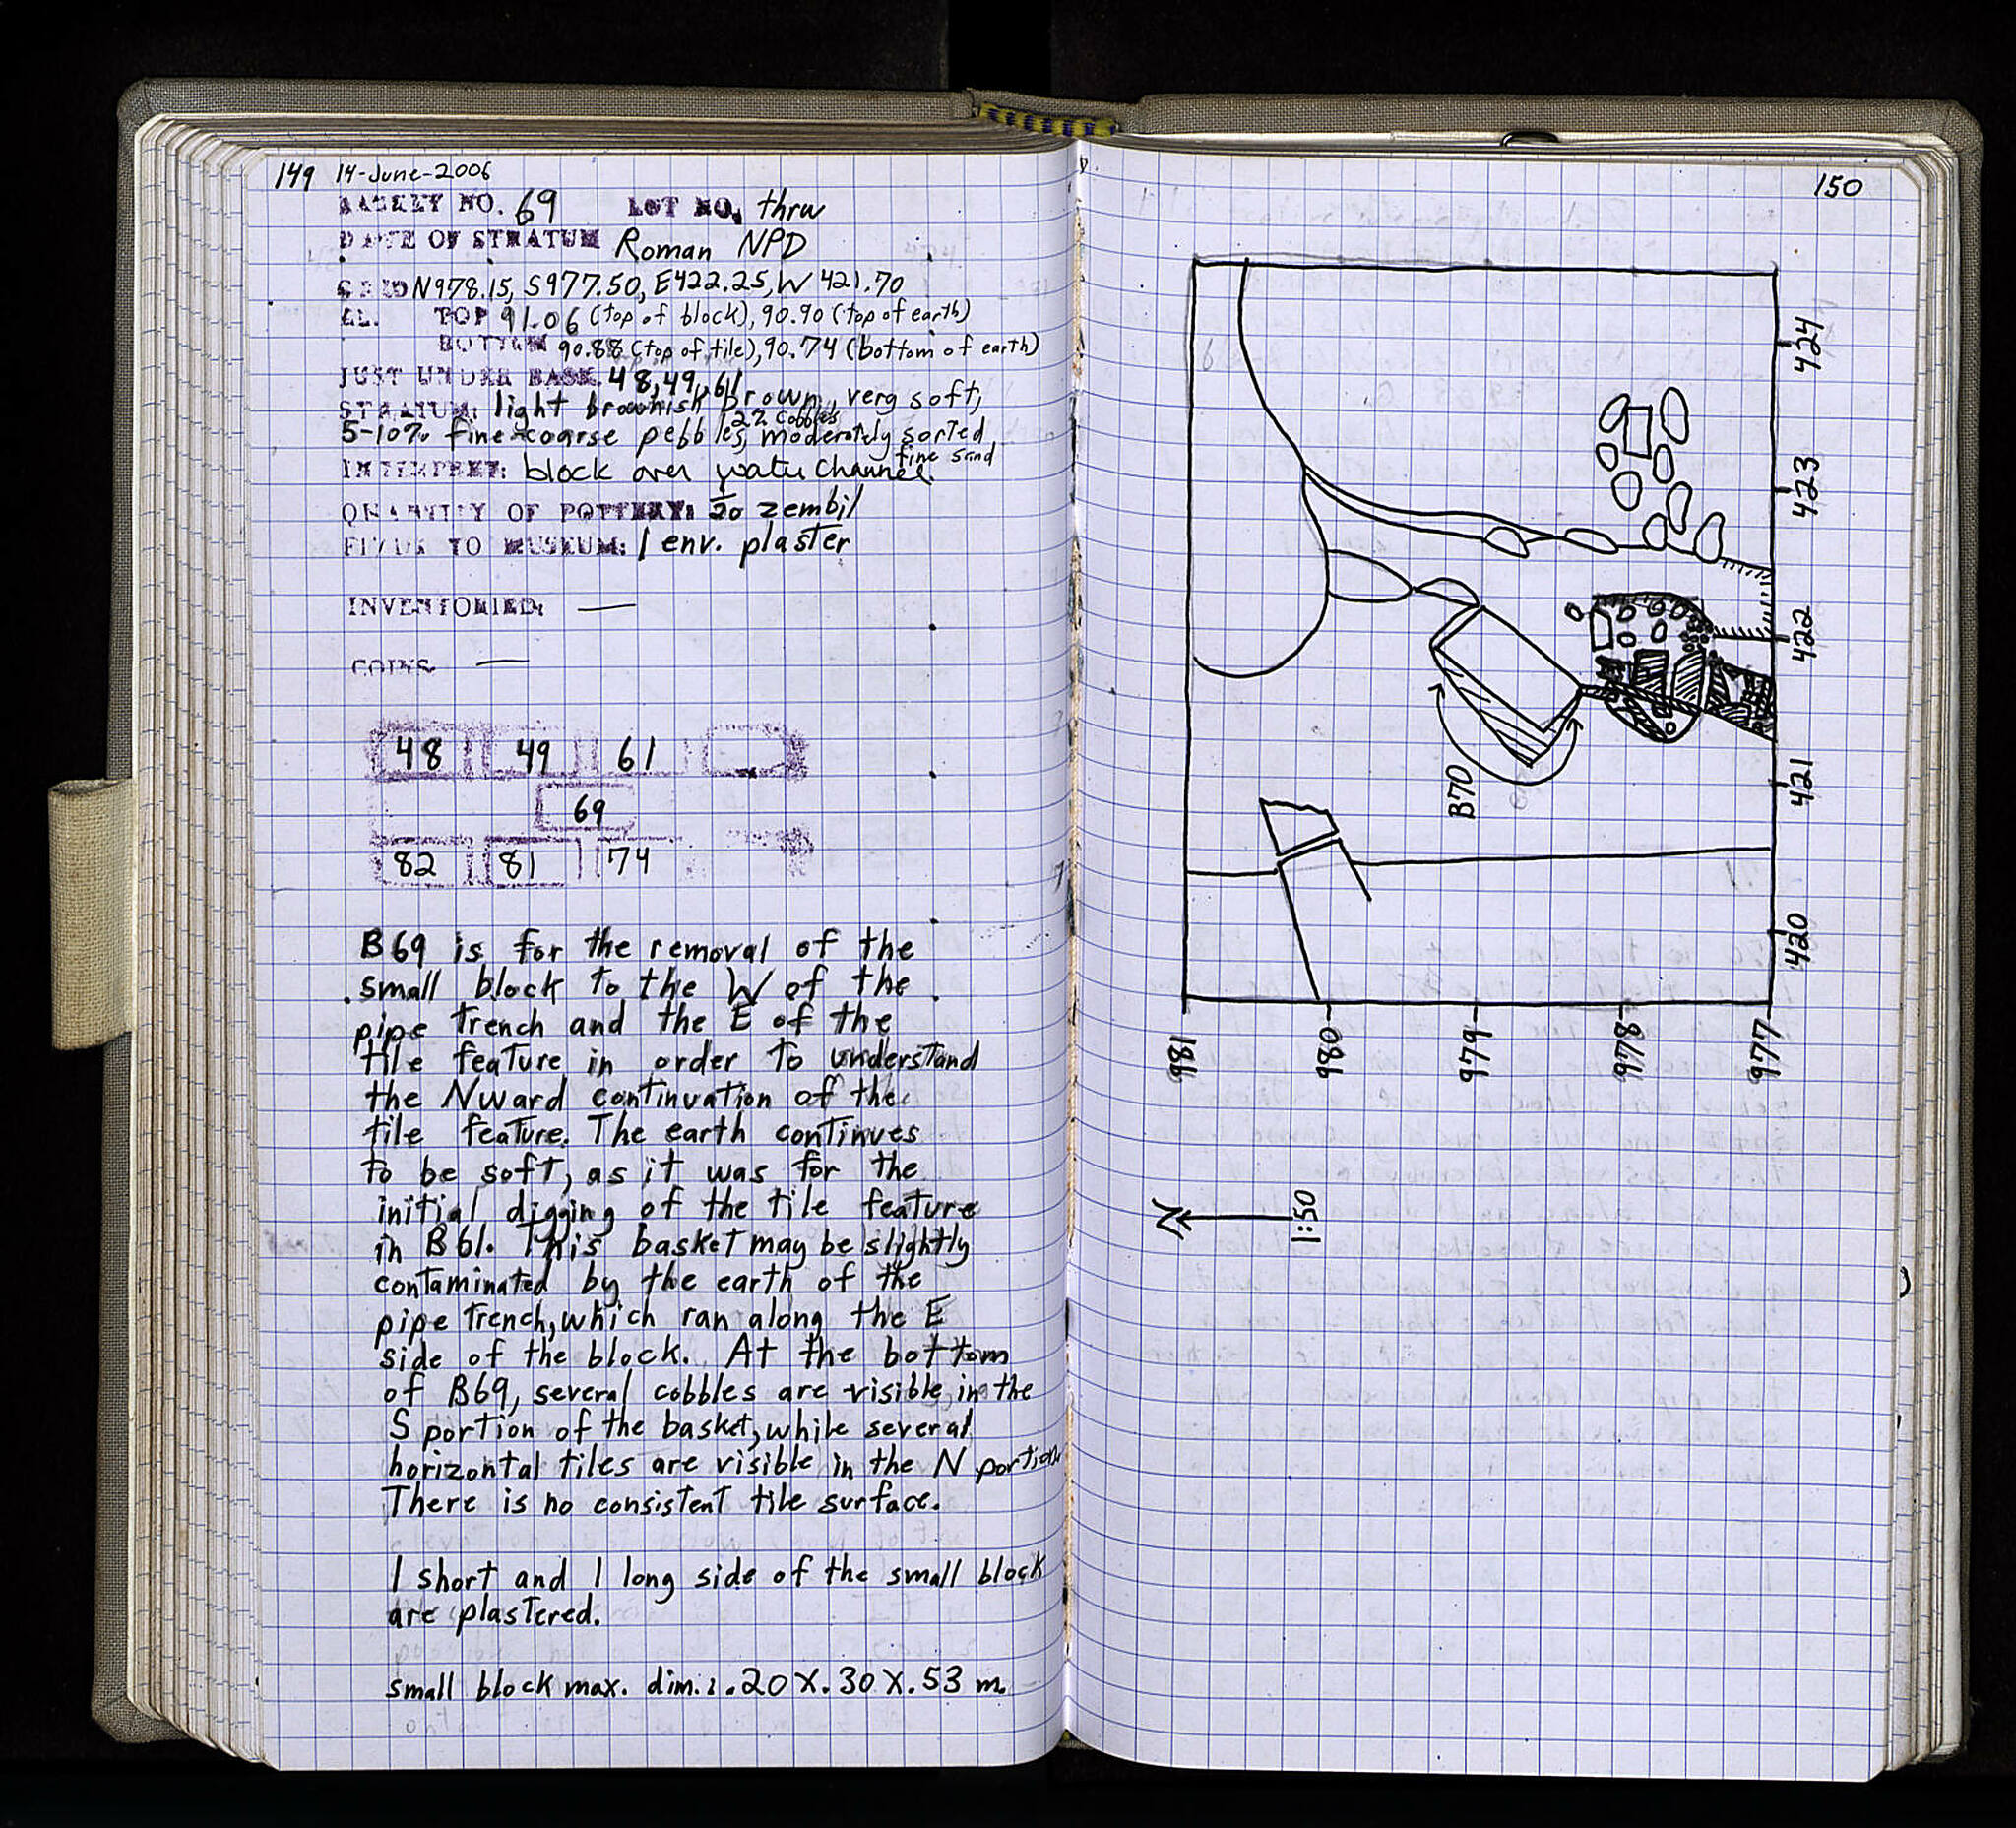 149 14-June-2006
BASKET NO. 69 LOT NO. thrw
DATE OF STRATUM Roman NPD
GRID N978.15, S977.50, E422.25, W421.70
EL. TOP 91.06 (top of block), 90.90 (top of earth)
BOTTOM 90.88 (top of tile), 90.74 (bottom of earth)
JUST UNDER BASK. 48, 49, 61
STRATUM: light brownish brown, very soft,
2% cobbles
5-10% fine-coarse pebbles, moderately sorted
fine sand
INTERPRET: block over water channel.
QUANTITY OF POTTERY: 1/20 zembil
FINDS TO MUSEUM: 1 env. plaster
INVENTORIED: —
COINS —
48 49 61
69
82 81 74
B69 is for the removal of the
small block to the W of the
pipe trench and the E of the
tile feature in order to understand
the Nward continuation of the
tile feature. The earth continues
to be soft, as it was for the
initial digging of the tile feature
in B61. This basket may be slightly
contaminated by the earth of the
pipe trench, which ran along the E
side of the block. At the bottom
of B69, several cobbles are visible in the
S portion of the basket, while several
horizontal tiles are visible in the N portion
There is no consistent tile surface.
1 short and 1 long side of the small block
are plastered.
small block max. dim.: .20 X .30 X .53 m.
150
424
423
422
421
420
B70
981
980
979
978
977
N
1:50